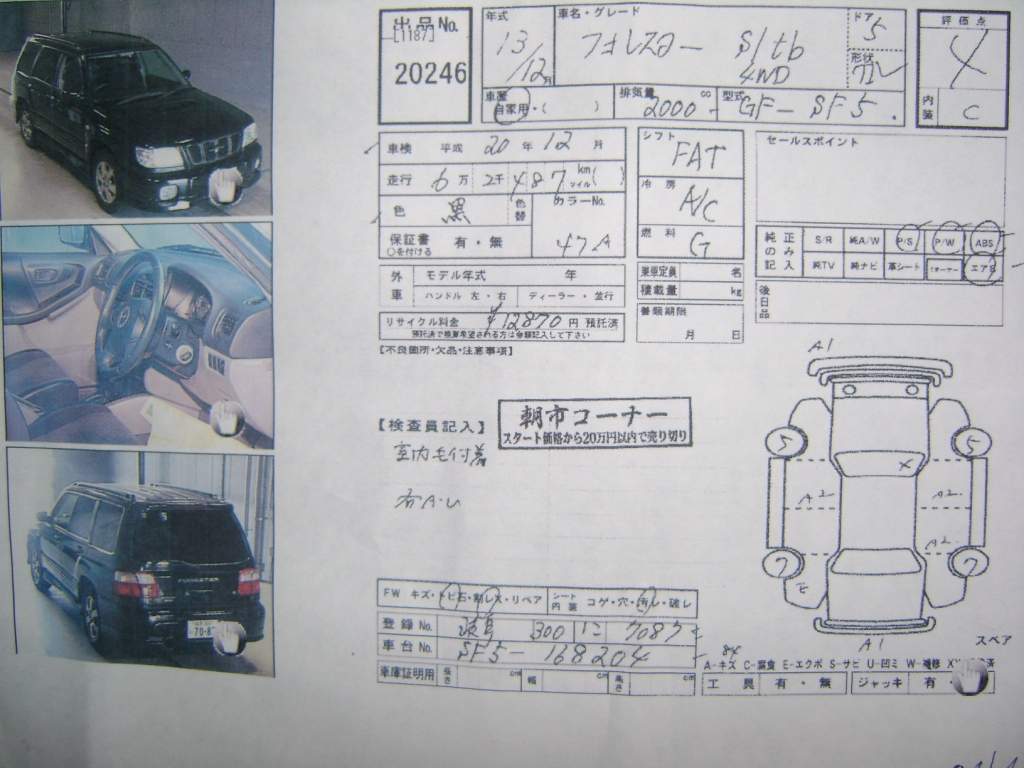 出品No.
[1187]
20246
年式
13/12月
車名・グレード
フォレスター S/tb
4WD
ドア
5
形状
評価点
X
内装
C
車歴
自家用・( )
排気量
2000 cc
型式
GF- SF5
車検 平成 20 年 12 月
走行 6 万 2 千 487 km マイル( )
色 黒 色替
カラーNo.
47A
保証書 有・無
○を付ける
シフト
FAT
冷房
A/C
燃料
G
セールスポイント
純正のみ記入
S/R 純A/W P/S P/W ABS
純TV 純ナビ 革シート エアB
後日品
外車
モデル年式 年
ハンドル 左・右 ディーラー・並行
乗車定員 名
積載量 kg
書類期限
月 日
リサイクル料金 ¥12870 円 預託済
預託済で検算希望される方は金額記入して下さい
【不良箇所・欠品・注意事項】
朝市コーナー
スタート価格から20万円以内で売り切り
【検査員記入】
室内毛付着
各A・U
A1
5
5
X
A2
A2
A2
7
7
E
A1
スペア
FW キズ・トビ石・線レス・リペア
シート内装 コゲ・穴・汚レ・破レ
登録No. 300 に 7087
車台No. SF5-168204
車庫証明用 長さ cm 幅 cm 高さ cm
A-キズ C-腐食 E-エクボ S-サビ U-凹ミ W-補修
工具 有・無 ジャッキ 有・
FORESTER